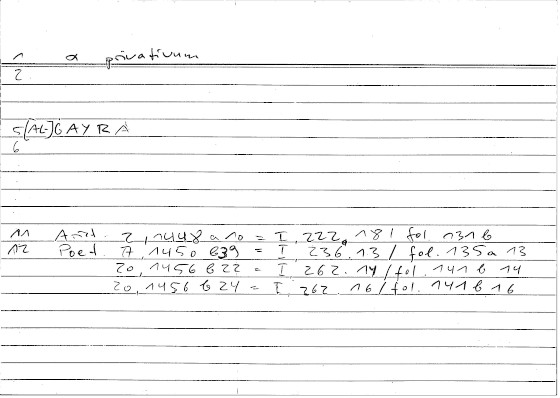 1 α privativum
2
5 [AL-]GAYRA
6
11 Arist. 2, 1448 a 10 = I, 222, 18 / fol 131 b
12 Poet. 7, 1450 b 39 = I, 236. 13 / fol. 135 a 13
20, 1456 b 22 = I, 262. 14 / fol. 141 b 14
20, 1456 b 24 = I, 262. 16 / fol. 141 b 16